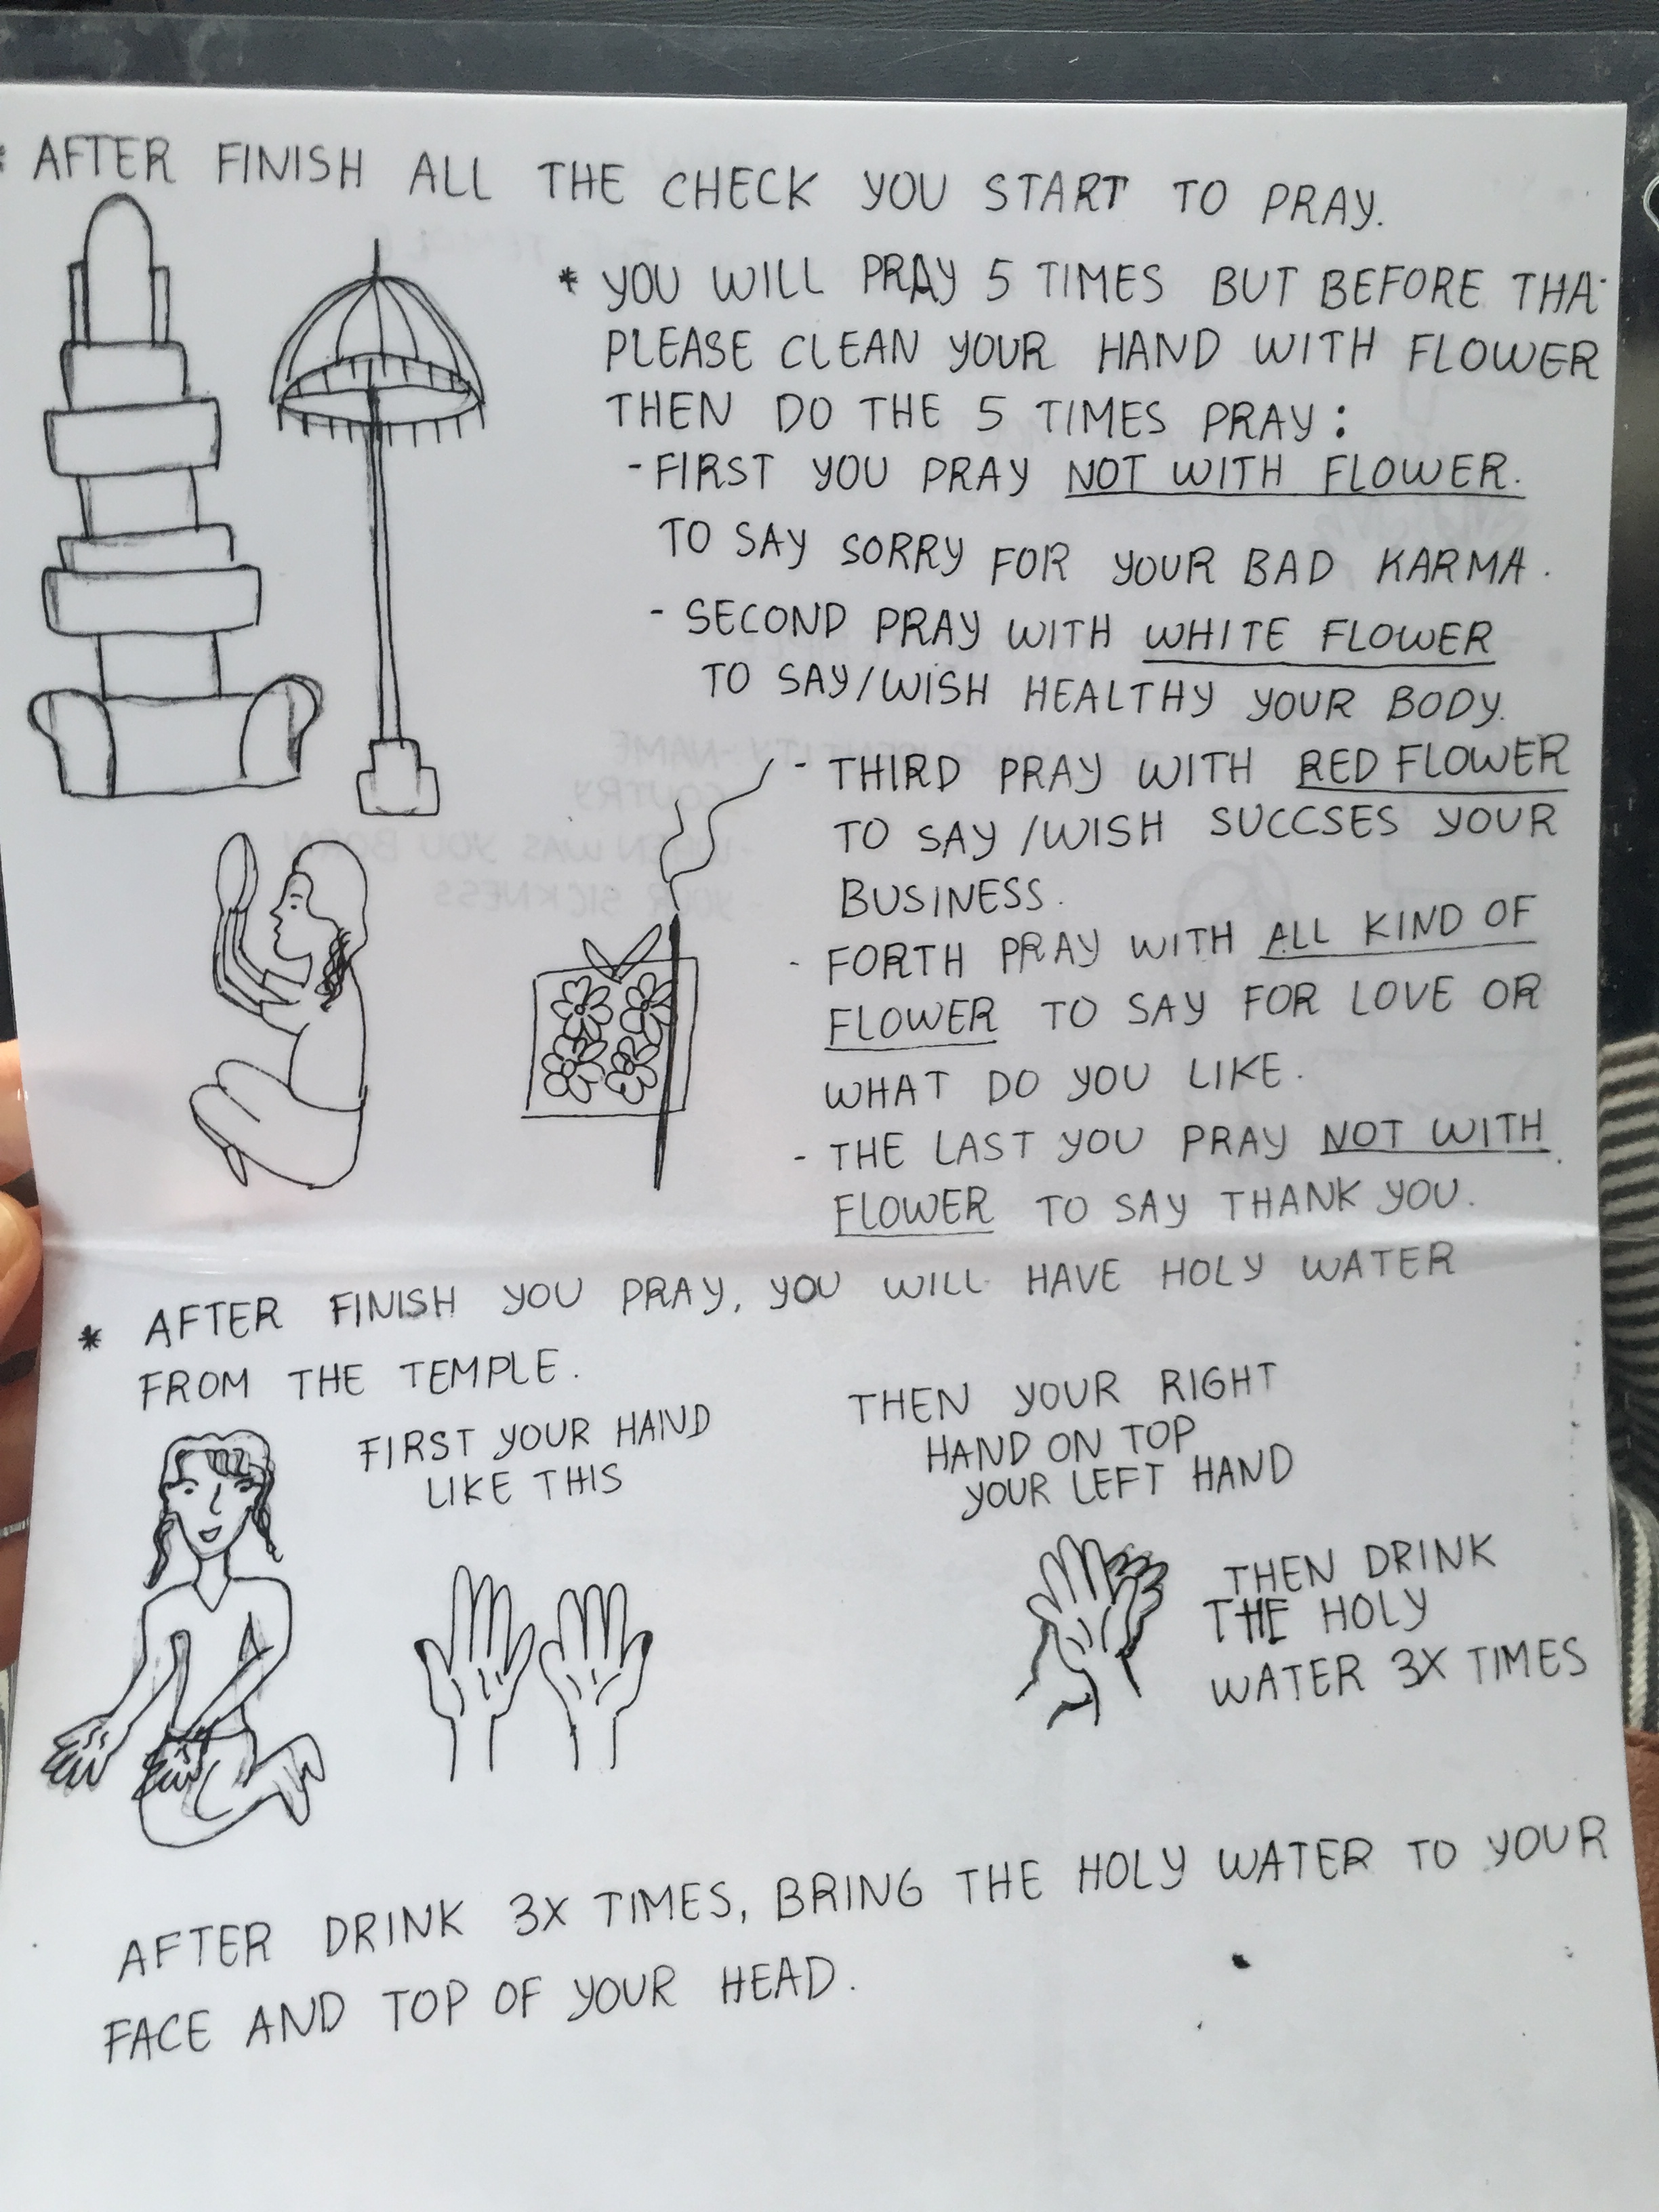 * AFTER FINISH ALL THE CHECK YOU START TO PRAY.
* YOU WILL PRAY 5 TIMES BUT BEFORE THA
PLEASE CLEAN YOUR HAND WITH FLOWER
THEN DO THE 5 TIMES PRAY :
- FIRST YOU PRAY NOT WITH FLOWER.
TO SAY SORRY FOR YOUR BAD KARMA.
- SECOND PRAY WITH WHITE FLOWER
TO SAY/WISH HEALTHY YOUR BODY.
- THIRD PRAY WITH RED FLOWER
TO SAY /WISH SUCCSES YOUR
BUSINESS.
- FORTH PRAY WITH ALL KIND OF
FLOWER TO SAY FOR LOVE OR
WHAT DO YOU LIKE.
- THE LAST YOU PRAY NOT WITH
FLOWER TO SAY THANK YOU.
* AFTER FINISH YOU PRAY, YOU WILL HAVE HOLY WATER
FROM THE TEMPLE.
FIRST YOUR HAND
LIKE THIS
THEN YOUR RIGHT
HAND ON TOP
YOUR LEFT HAND
THEN DRINK
THE HOLY
WATER 3X TIMES
AFTER DRINK 3X TIMES, BRING THE HOLY WATER TO YOUR
FACE AND TOP OF YOUR HEAD.